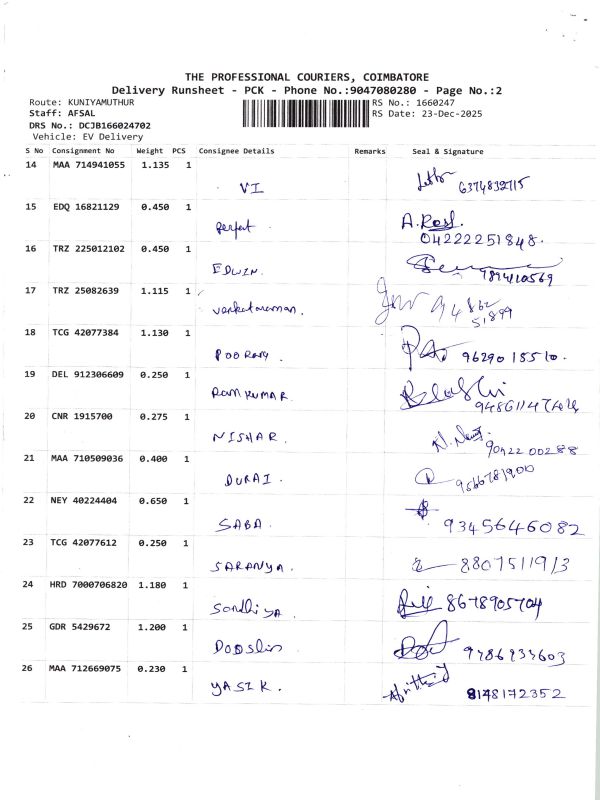 THE PROFESSIONAL COURIERS, COIMBATORE
Delivery Runsheet - PCK - Phone No.:9047080280 - Page No.:2
Route: KUNIYAMUTHUR RS No.: 1660247
Staff: AFSAL RS Date: 23-Dec-2025
DRS No.: DCJB166024702
Vehicle: EV Delivery
S No Consignment No Weight PCS Consignee Details Remarks Seal & Signature
14 MAA 714941055 1.135 1
VI
15 EDQ 16821129 0.450 1
perfect A.
04222251848.
16 TRZ 225012102 0.450 1
EDWIN.
17 TRZ 25082639 1.115 1
venkataraman.
18 TCG 42077384 1.130 1
POORANI. 9629015510.
19 DEL 912306609 0.250 1
RAMKUMAR
20 CNR 1915700 0.275 1
NISHAR. 9042200288
21 MAA 710509036 0.400 1
DURAI.
22 NEY 40224404 0.650 1
SABA. 9345646082
23 TCG 42077612 0.250 1
SARANYA. 8807511913
24 HRD 7000706820 1.180 1
Sandhiya. 8678905704
25 GDR 5429672 1.200 1
26 MAA 712669075 0.230 1
YASIK. 8148172352